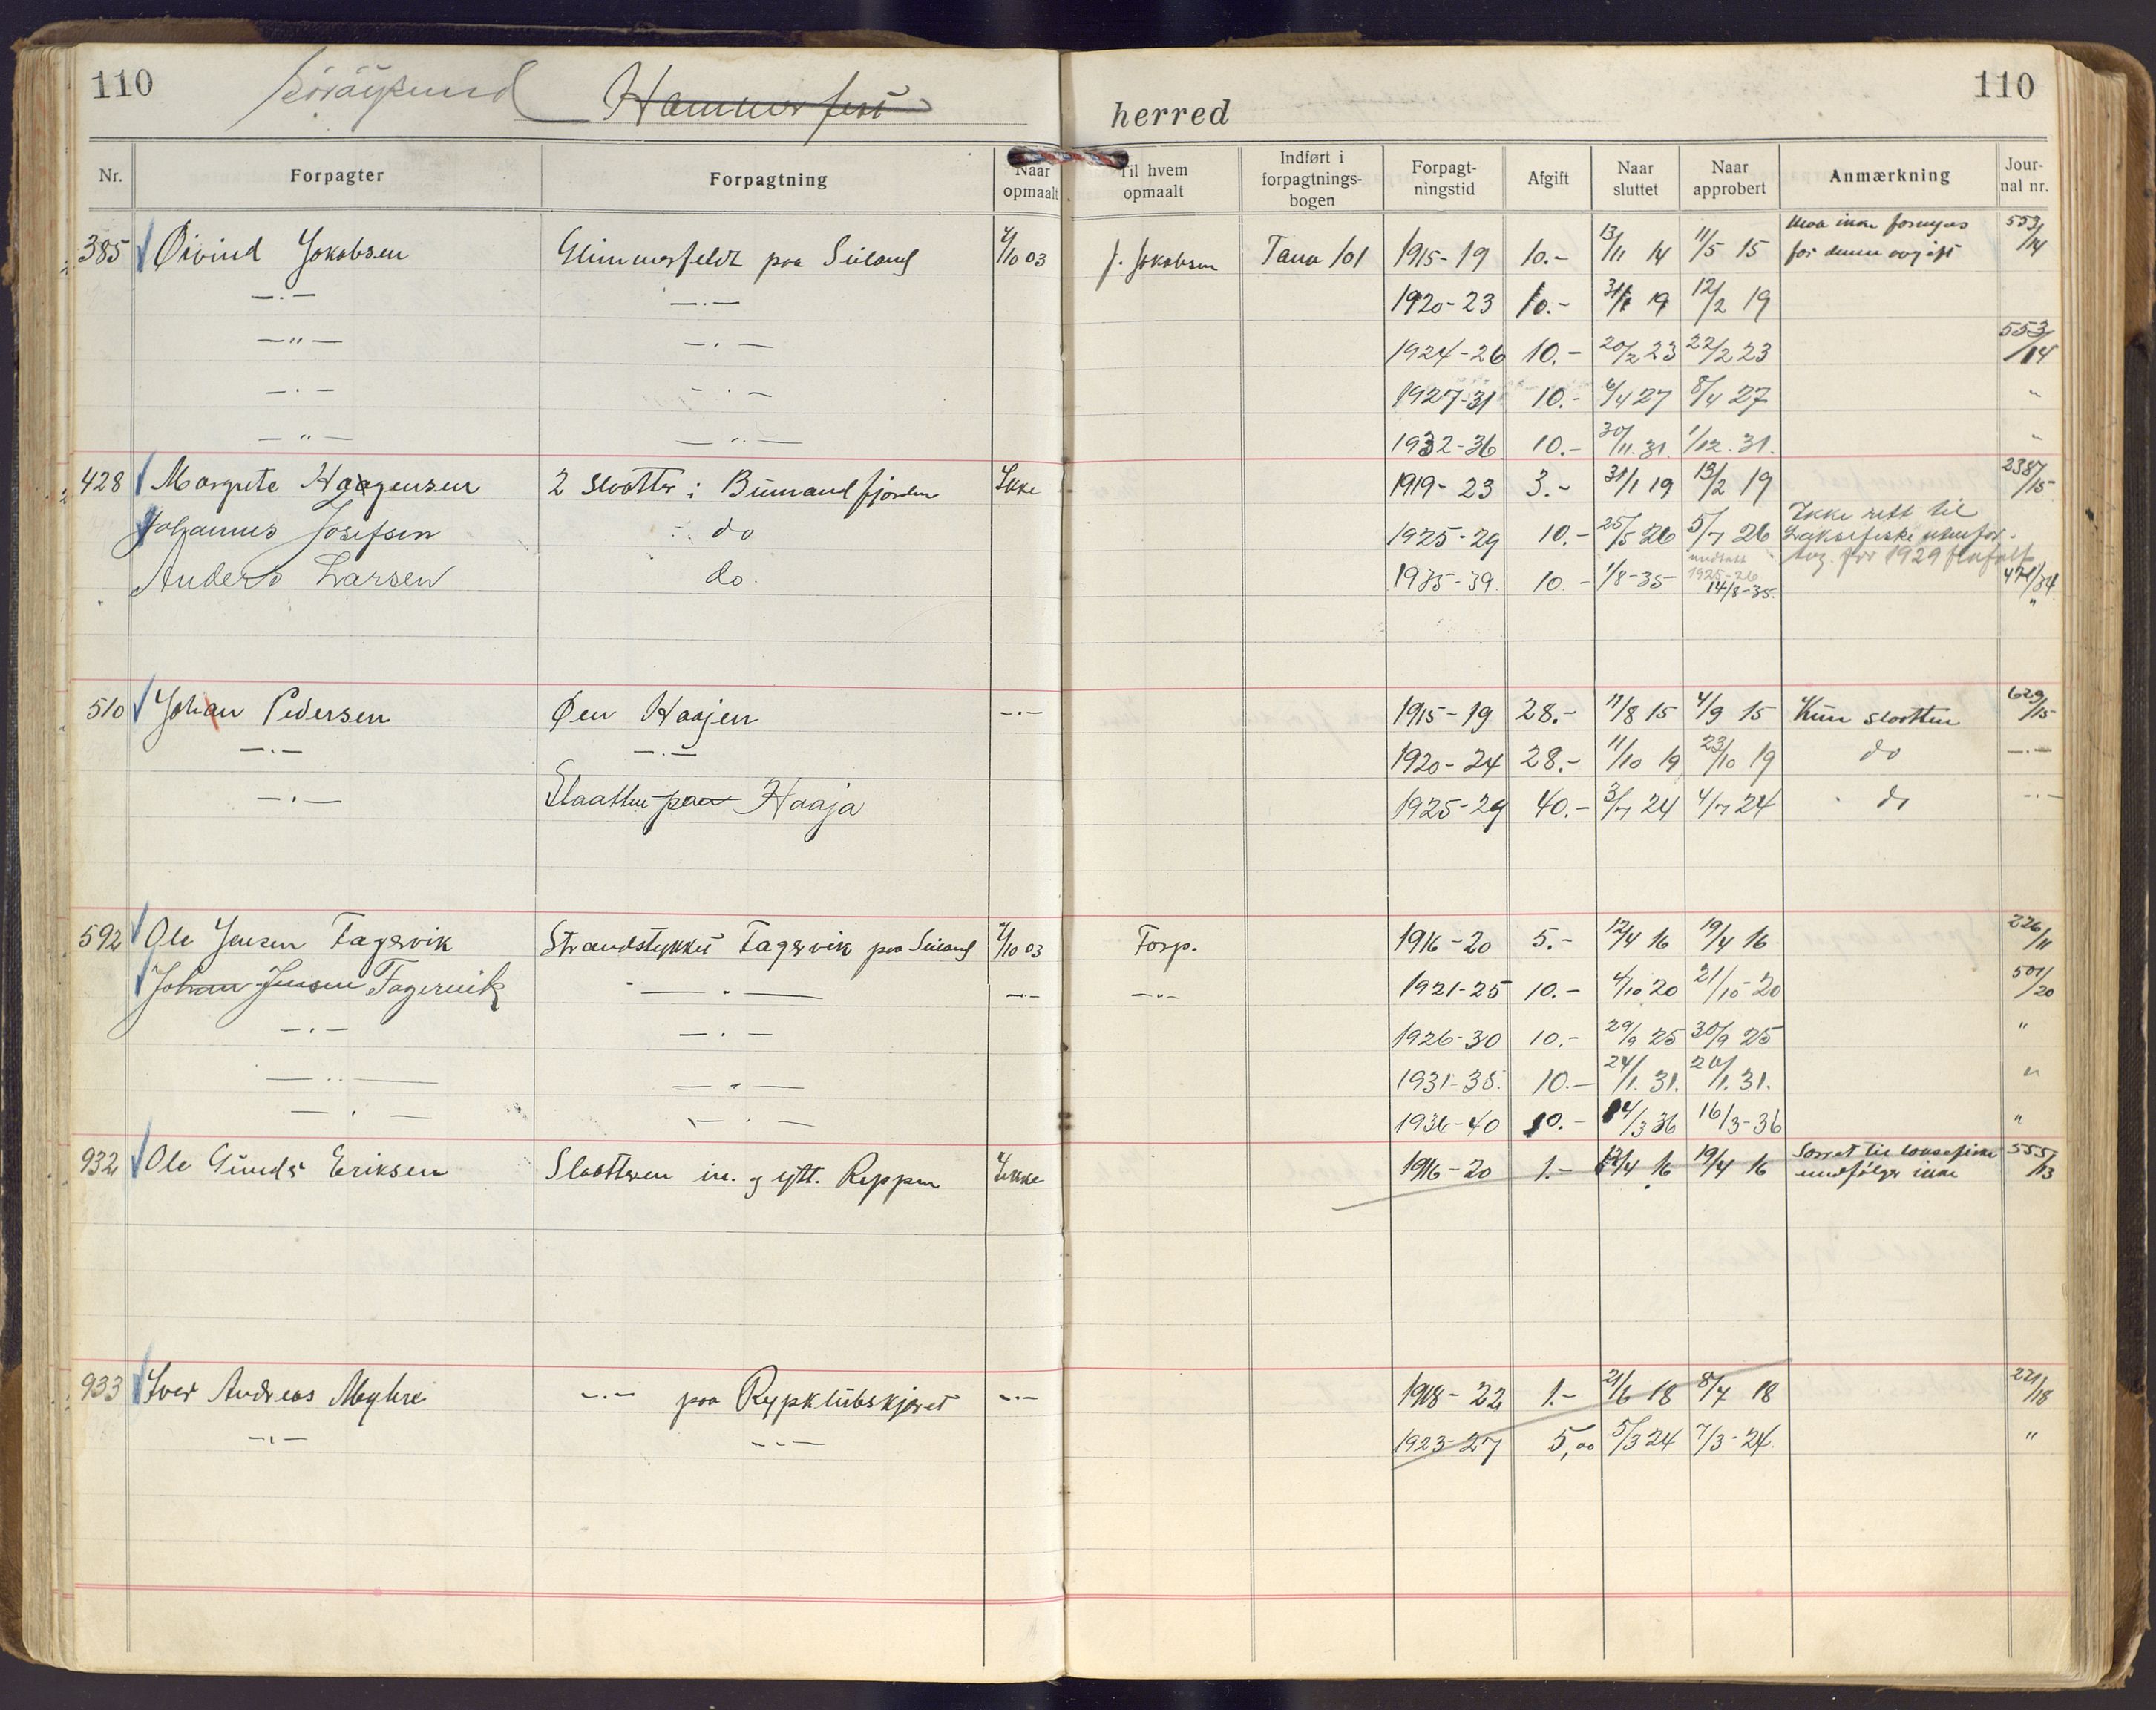 110 Sørøysund Hammerfest herred 110
Nr. Forpagter Forpagtning Naar opmaalt Til hvem opmaalt Indført i forpagtnings-bogen Forpagt-ningstid Afgift Naar sluttet Naar approbert Anmærkning Jour-nal nr.
385 Øivind Jakobsen Glimmerfeldt paa Seiland 7/10 03 J. Jakobsen Tana 101 1915-19 10.- 13/11 14 11/5 15 Maa ikke fornyes for denne avgift 553/14
—·— —·— 1920-23 10.- 31/1 19 12/2 19
—"— —·— 1924-26 10.- 20/2 23 22/2 23 553/14
—·— —·— 1927-31 10.- 6/4 27 8/4 27 "
—"— —"— 1932-36 10.- 30/11.31. 1/12.31. "
428 Margrete Haagensen 2 slaatter i Bumandfjorden Ikke 1919-23 3.- 31/1 19 13/2 19 2387/15
Johannes Josefsen do 1925-29 10.- 25/5 26 5/7 26 Ikke rett til Laksefiske utenfor
undtatt 1925-26 1929
Anders Larsen do. 1935-39. 10.- 1/8-35 14/8-35. 471/34 "
510 Johan Pedersen Øen Haajen —·— 1915-19 28.- 11/8 15 4/9 15 Kun slaatten 629/15
—·— —·— 1920-24 28.- 11/10 19 23/10 19 do —·—
—·— Slaatten paa Haaja 1925-29 40.- 3/7 24 4/7 24 do —·—
592 Ole Jensen Fagervik Strandstykket Fagervik paa Seiland 7/10 03 Forp. 1916-20 5.- 12/4 16 19/4 16 226/11
Johan Jensen Fagervik —·— —·— —"— 1921-25 10.- 4/10 20 21/10-20 501/20
—·— —·— 1926-30 10.- 29/9 25 30/9 25 "
—"— —"— 1931-35. 10.- 24/1.31. 26/1.31. "
—·— —·— 1936-40 10.- 14/3 36 16/3-36 "
932 Ole Gunder Eriksen Slaatteren in. og ytt. Reppen Ikke 1916-20 1.- 12/4 16 19/4 16 Særret til laksefiske medfølger ikke 555/13
933 Iver Andreas Myhre —·— paa Rypklubskjæret —·— 1918-22 1.- 21/6 18 8/7 18 221/18
—·— —·— 1923-27 5,00 5/3 24 7/3-24. "